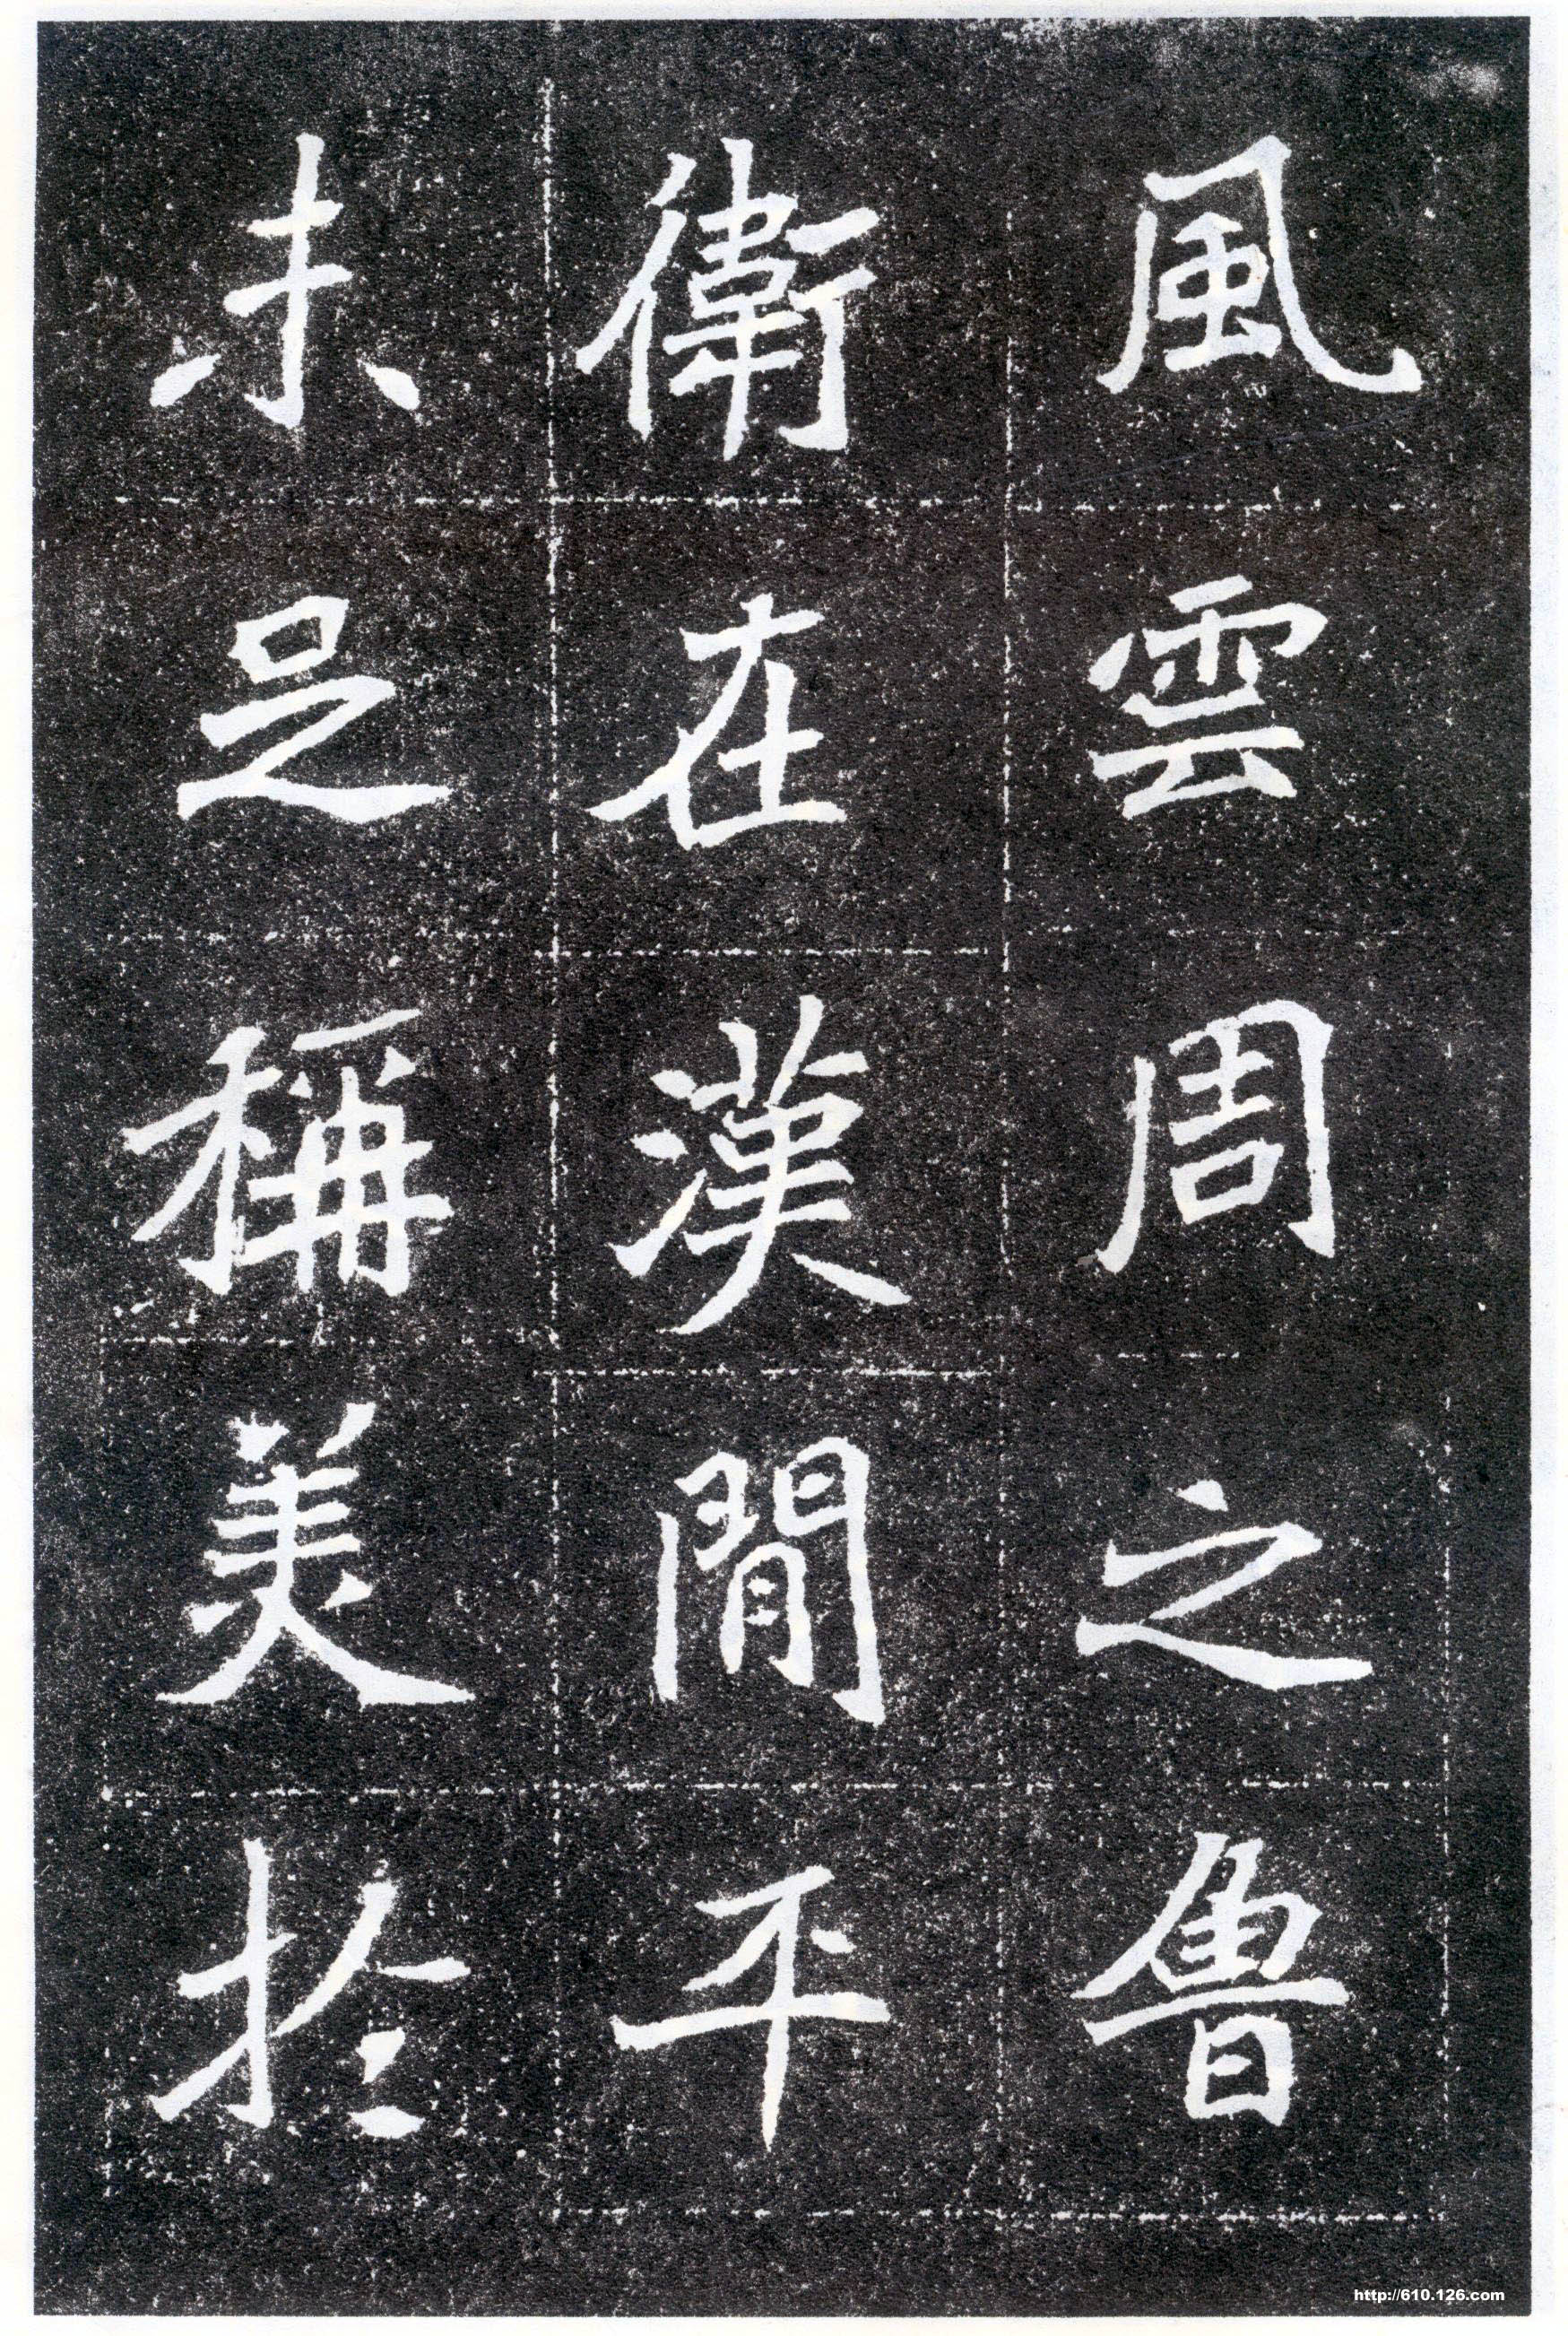 風雲周之魯
衛在漢間平
未足稱美於
http://610.126.com